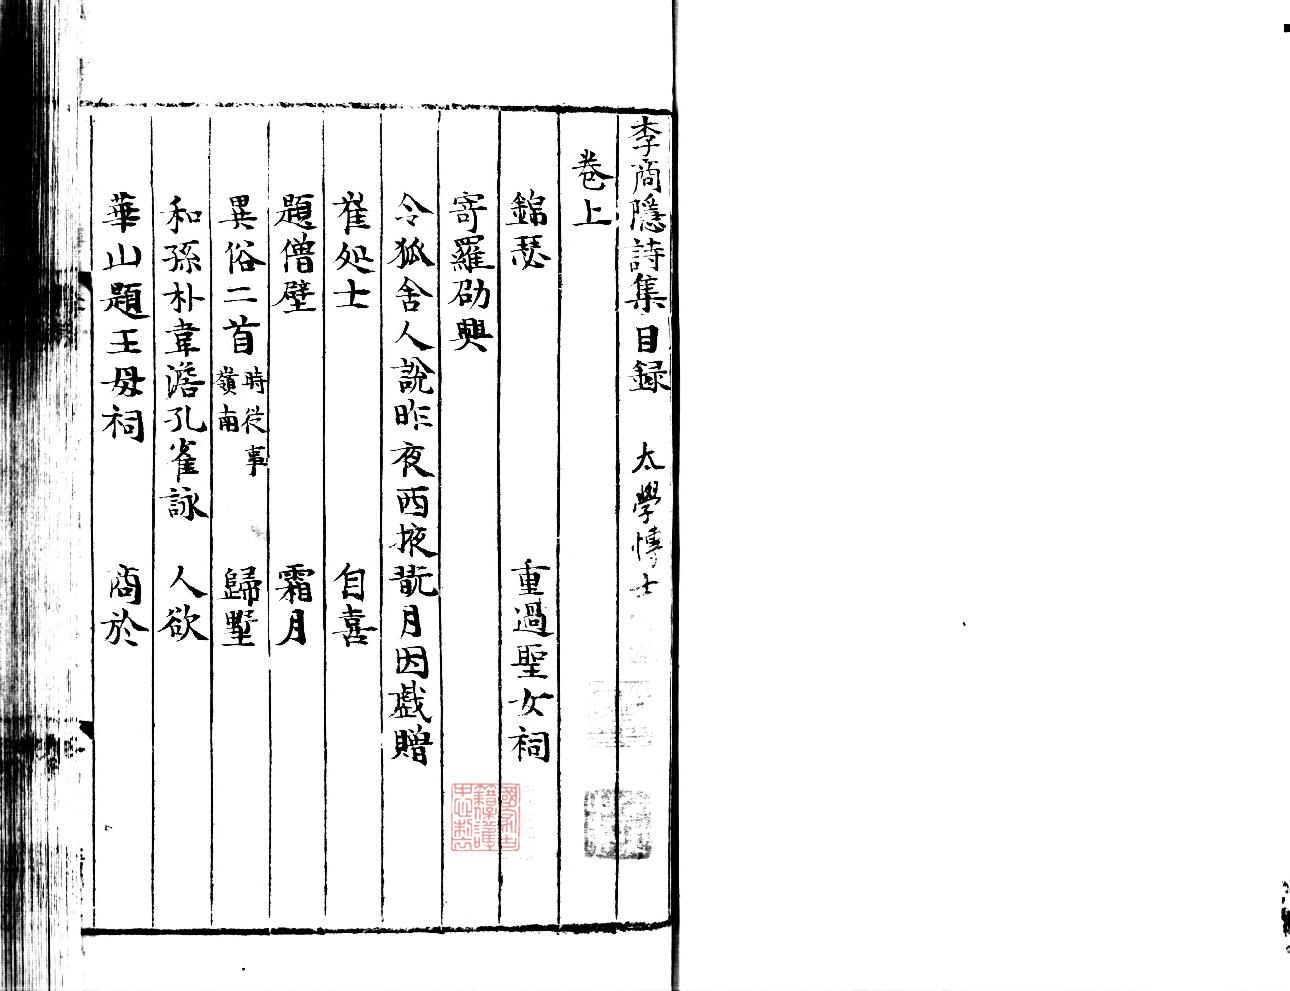 李商隱詩集目録 太學博士
卷上
錦瑟 重過聖女祠
寄羅劭興
令狐舍人說昨夜西掖翫月因戲贈
崔処士 自喜
題僧壁 霜月
異俗二首 時從事嶺南 歸墅
和孫朴韋澹孔雀詠 人欲
華山題王母祠 商於